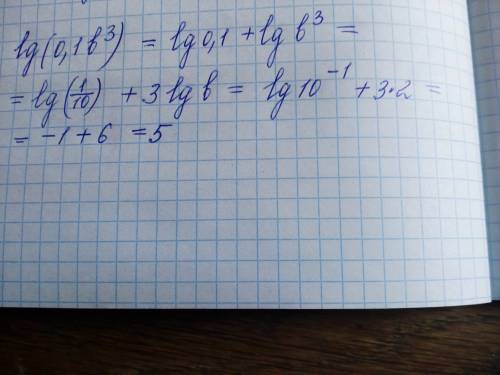 lg(0,1b³) = lg0,1 + lgb³ =
= lg(1/10) + 3lgb = lg10⁻¹ + 3·2 =
= -1 + 6 = 5